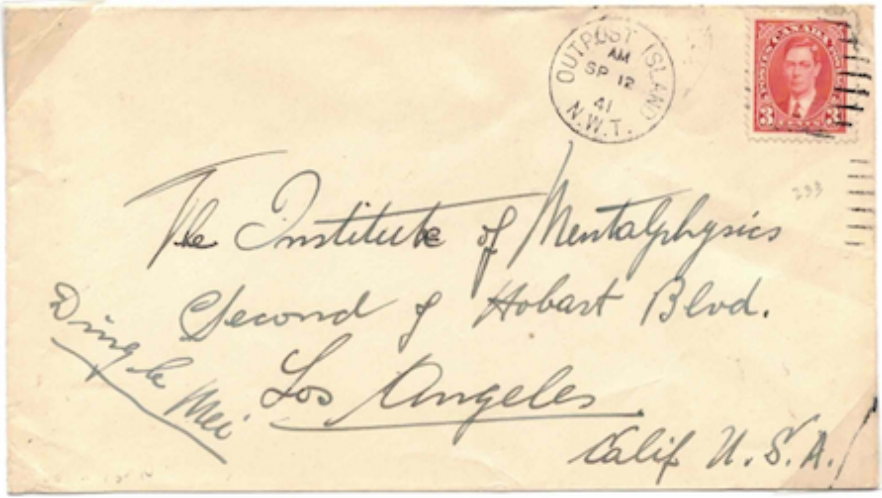 OUTPOST ISLAND
AM
SP 12
41
N.W.T.
POSTES CANADA POSTAGE
3 CENTS 3
233
The Institute of Mentalphysics
Second & Hobart Blvd.
Los Angeles
Calif U.S.A.
Dingle Mei